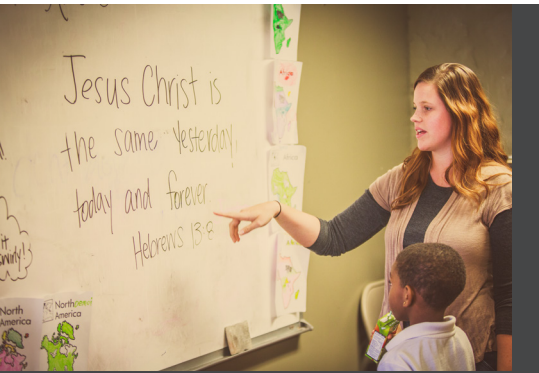 Jesus Christ is
the same Yesterday,
today and forever.
Hebrews 13:8
it
swirly!
North
America
North
America